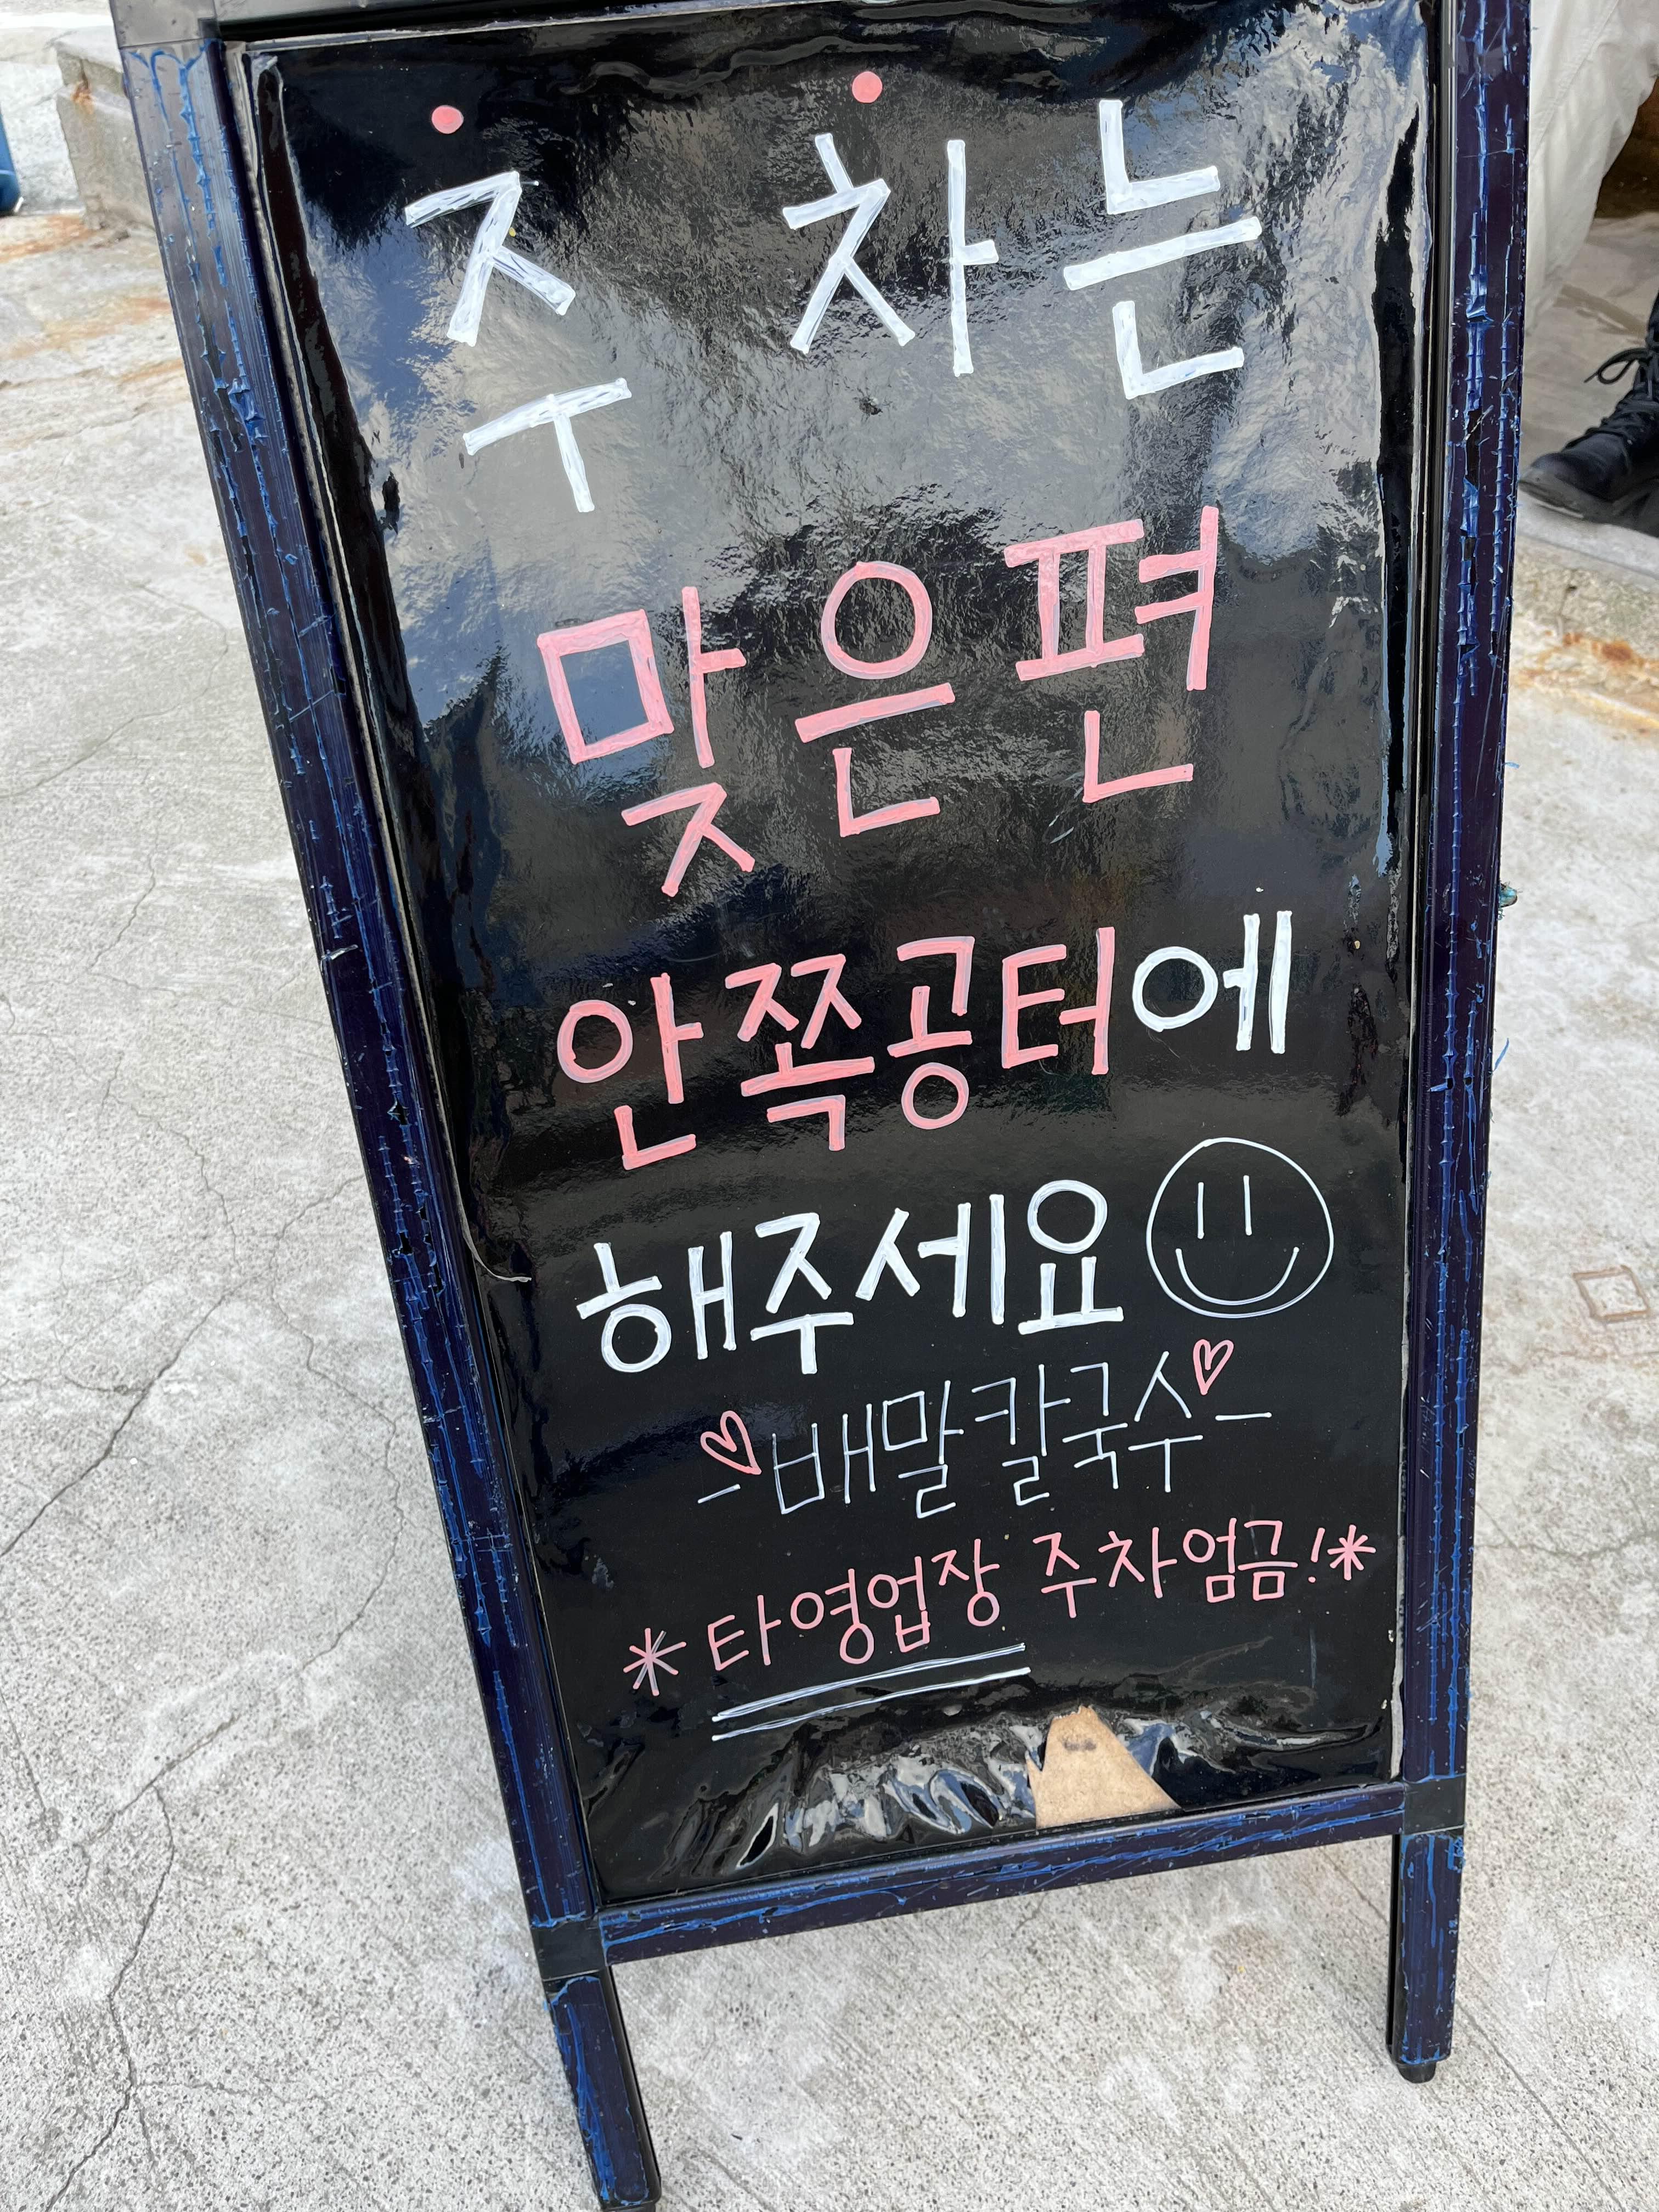 주차는
맞은편
안쪽공터에
해주세요
-배말칼국수-
*타영업장 주차엄금!*